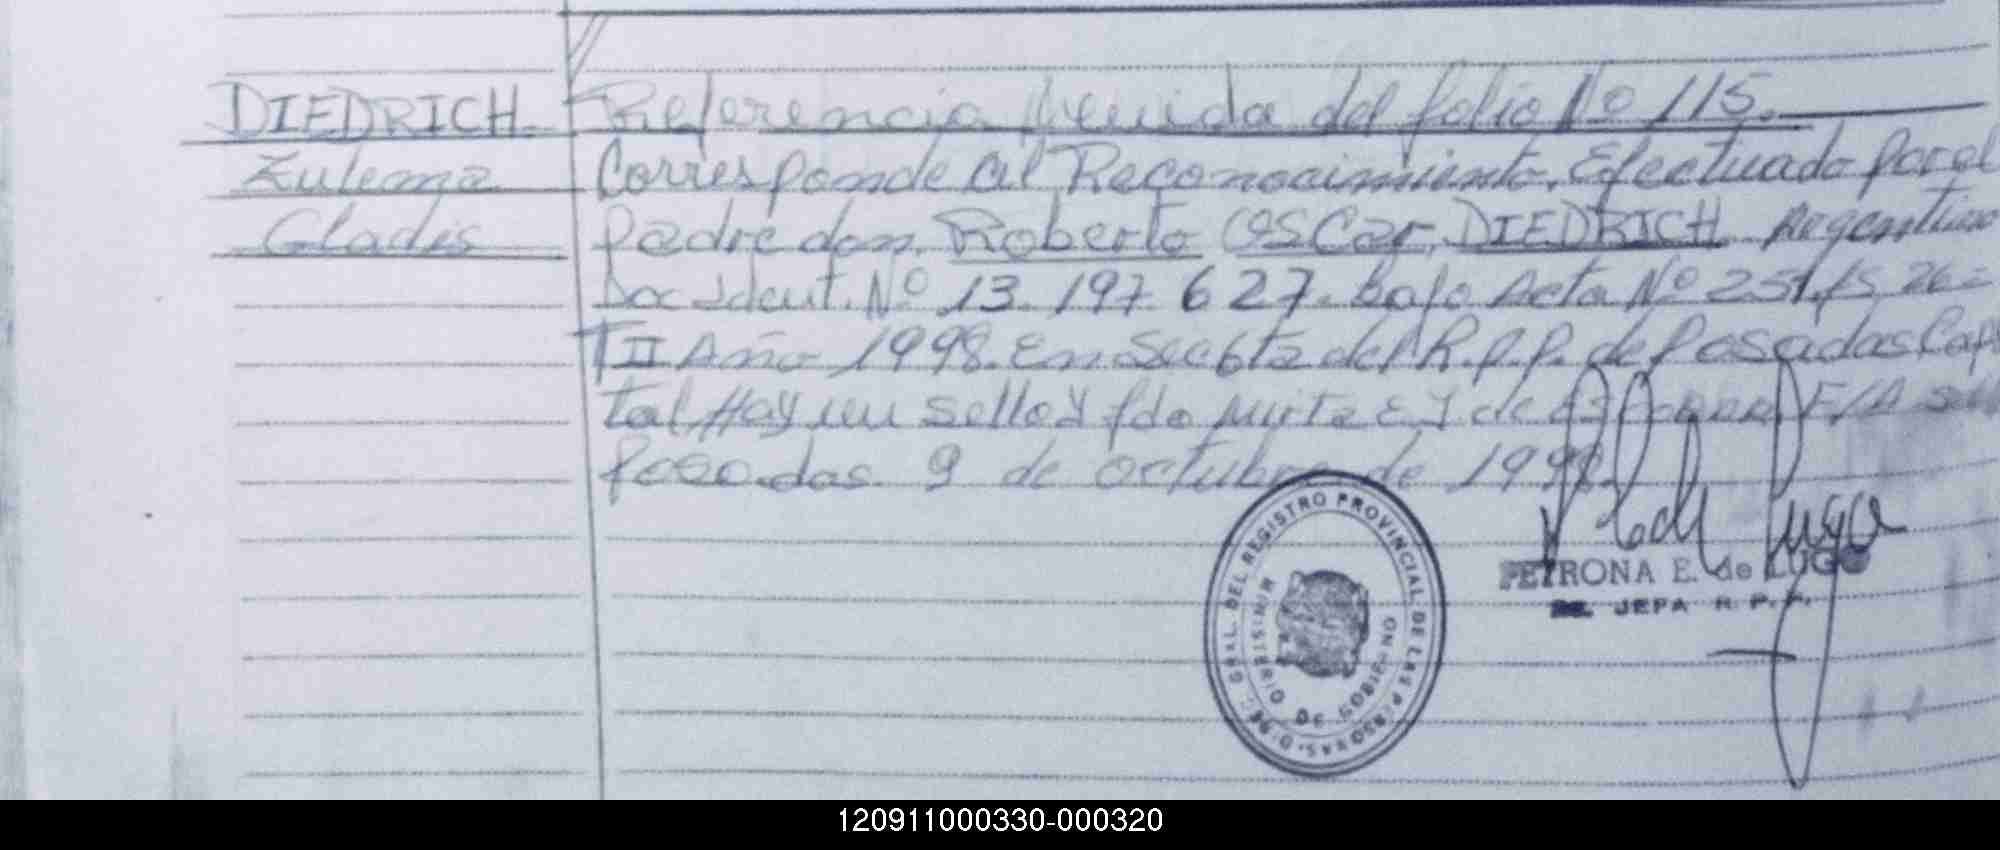 DIEDRICH Referencia Venida del folio No 115.
Zulema Corresponde al Reconocimiento. Efectuado por el
Gladis padre don. Roberto OSCar, DIEDRICH Argentino
Doc Ident. No 13.197.627. bajo Acta No 251. fs 26=
T II Año 1998. En Sec 6ta del R.P.P. de Posadas Capi
tal. Hay un sello y fdo Mirta E J de F/A Sec
Posadas. 9 de octubre de 1998.
DIREC. GRAL. DEL REGISTRO PROVINCIAL DE LAS PERSONAS
DE GOBIERNO
PETRONA E. de LUGO
JEFA R. P. P.
120911000330-000320